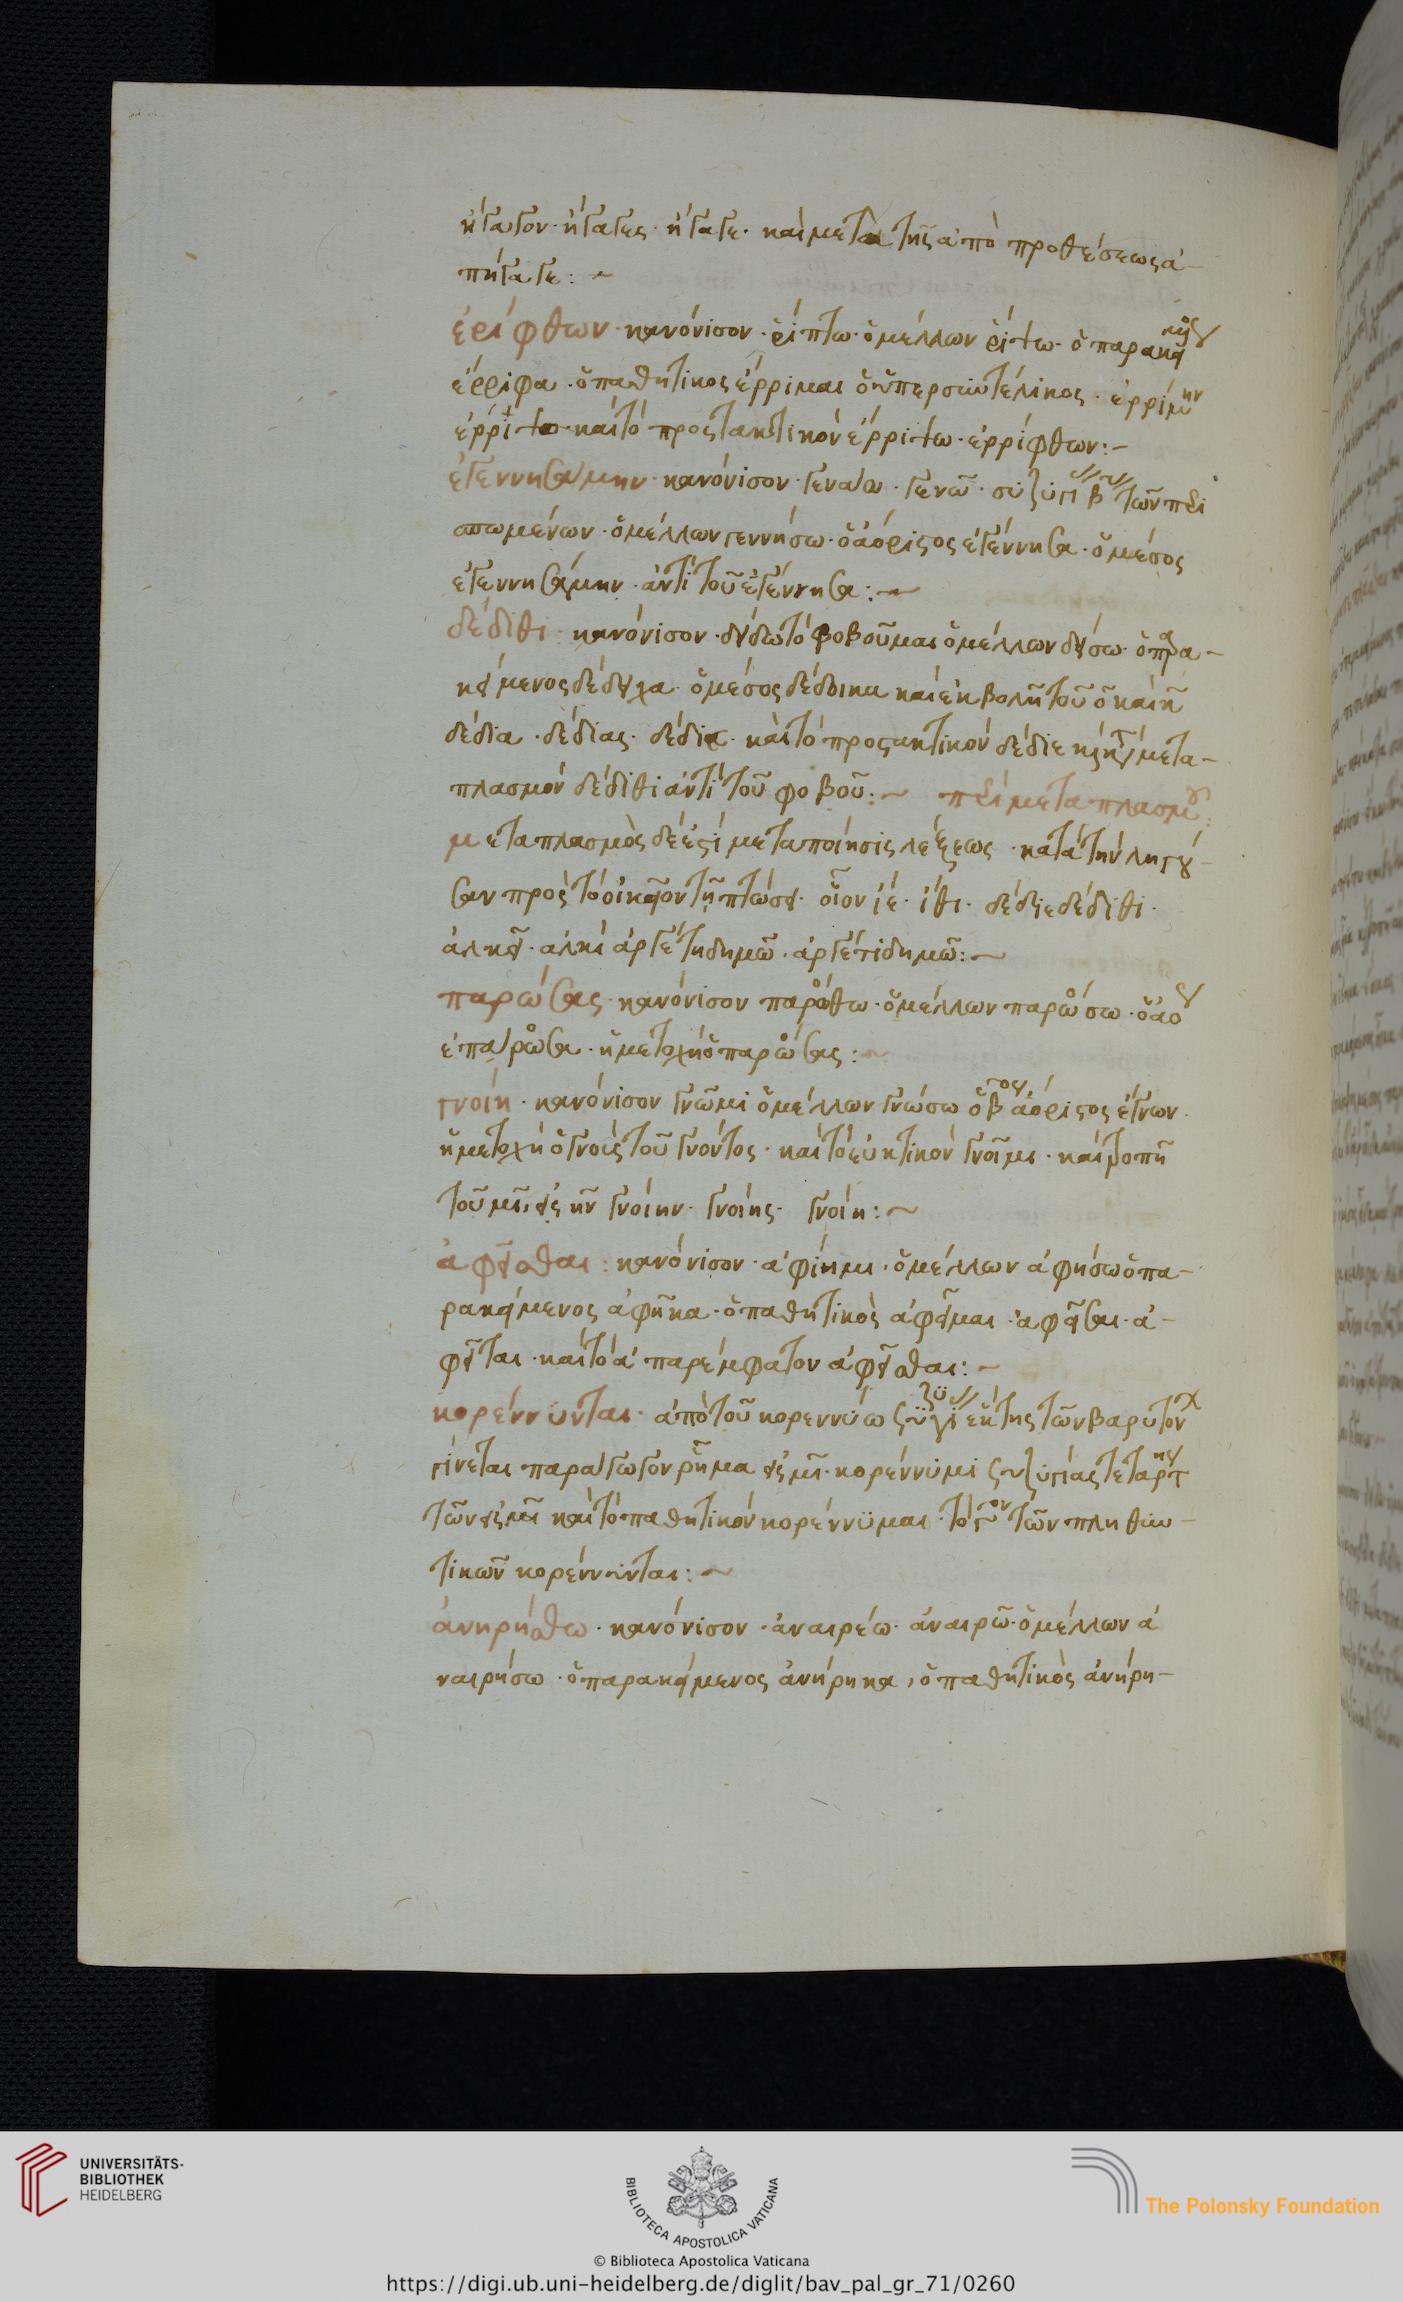 ἤγαγον· ἤγαγες· ἤγαγε· καὶ μετὰ τῆς ἀπὸ προθέσεως ἀ-
πήγαγε:
ἐρίφθων· κανόνισον· ῥίπτω· ὁ μέλλων ῥίψω· ὁ παρακείμενος
ἔρριφα· ὁ παθητικὸς ἔρριμαι ὁ ὑπερσυντέλικος· ἐρρίμην
ἔρριψο· καὶ τὸ προστακτικὸν ἐρρίψω· ἐρρίφθων:
ἐγεννησάμην· κανόνισον· γεννάω· γενῶ· συζυγίας β τῶν περι
σπωμένων· ὁ μέλλων γεννήσω· ὁ ἀόριστος ἐγέννησα· ὁ μέσος
ἐγεννησάμην· ἀντὶ τοῦ ἐγέννησα:
δέδιθι· κανόνισον· δείδω τὸ φοβοῦμαι ὁ μέλλων δείσω· ὁ παρα-
κείμενος δέδειχα· ὁ μέσος δέδοικα καὶ ἐκβολῆ τοῦ ο καὶ κ
δέδια· δέδιας· δέδιε· καὶ τὸ προστακτικὸν δέδιε καὶ κατὰ μετα-
πλασμὸν δέδιθι ἀντὶ τοῦ φοβοῦ: περὶ μεταπλασμοῦ:
μεταπλασμὸς δέ ἐστι μεταποίησις λέξεως· κατὰ τὴν λήγου-
σαν πρὸς τὸ οἰκεῖον τῆ πτώσει· οἷον ἴε· ἴθι· δέδιε δέδιθι·
ἀλκεῖ· ἀλκί ἀργέτη δημῶ· ἀργέτι δημῶ:
παρώσας· κανόνισον παρώθω· ὁ μέλλων παρώσω· ὁ ἀόριστος
ἐπάρωσα· ἡ μετοχὴ ὁ παρώσας:
γνοίη· κανόνισον γνῶμι ὁ μέλλων γνώσω ὁ β ἀόριστος ἔγνων·
ἡ μετοχὴ ὁ γνοὺς τοῦ γνόντος· καὶ τὸ εὐκτικὸν γνοῖμι· καὶ τροπῆ
τοῦ μι, εἰς ην γνοίην· γνοίης· γνοίη:
ἀφεῖσθαι: κανόνισον· ἀφίημι· ὁ μέλλων ἀφήσω ὁ πα-
ρακείμενος ἀφῆκα· ὁ παθητικὸς ἀφεῖμαι· ἀφεῖσαι· ἀ-
φεῖται· καὶ τὸ ἀπαρέμφατον ἀφεῖσθαι:
κορέννυνται· ἀπὸ τοῦ κορεννύω συζυγίας ἕκτης τῶν βαρυτον
γίνεται παράγωγον ῥῆμα εἰς μι· κορέννυμι συζυγίας τετάρτης
τῶν εἰς μι καὶ τὸ παθητικὸν κορέννυμαι· τὸ γον τῶν πληθυν-
τικῶν κορέννυνται:
ἀνηρήσθω· κανόνισον· ἀναιρέω· ἀναιρῶ· ὁ μέλλων ἀ
ναιρήσω· ὁ παρακείμενος ἀνήρηκα, ὁ παθητικὸς ἀνήρη-
UNIVERSITÄTS-
BIBLIOTHEK
HEIDELBERG
BIBLIOTECA APOSTOLICA VATICANA
The Polonsky Foundation
© Biblioteca Apostolica Vaticana
https://digi.ub.uni-heidelberg.de/diglit/bav_pal_gr_71/0260